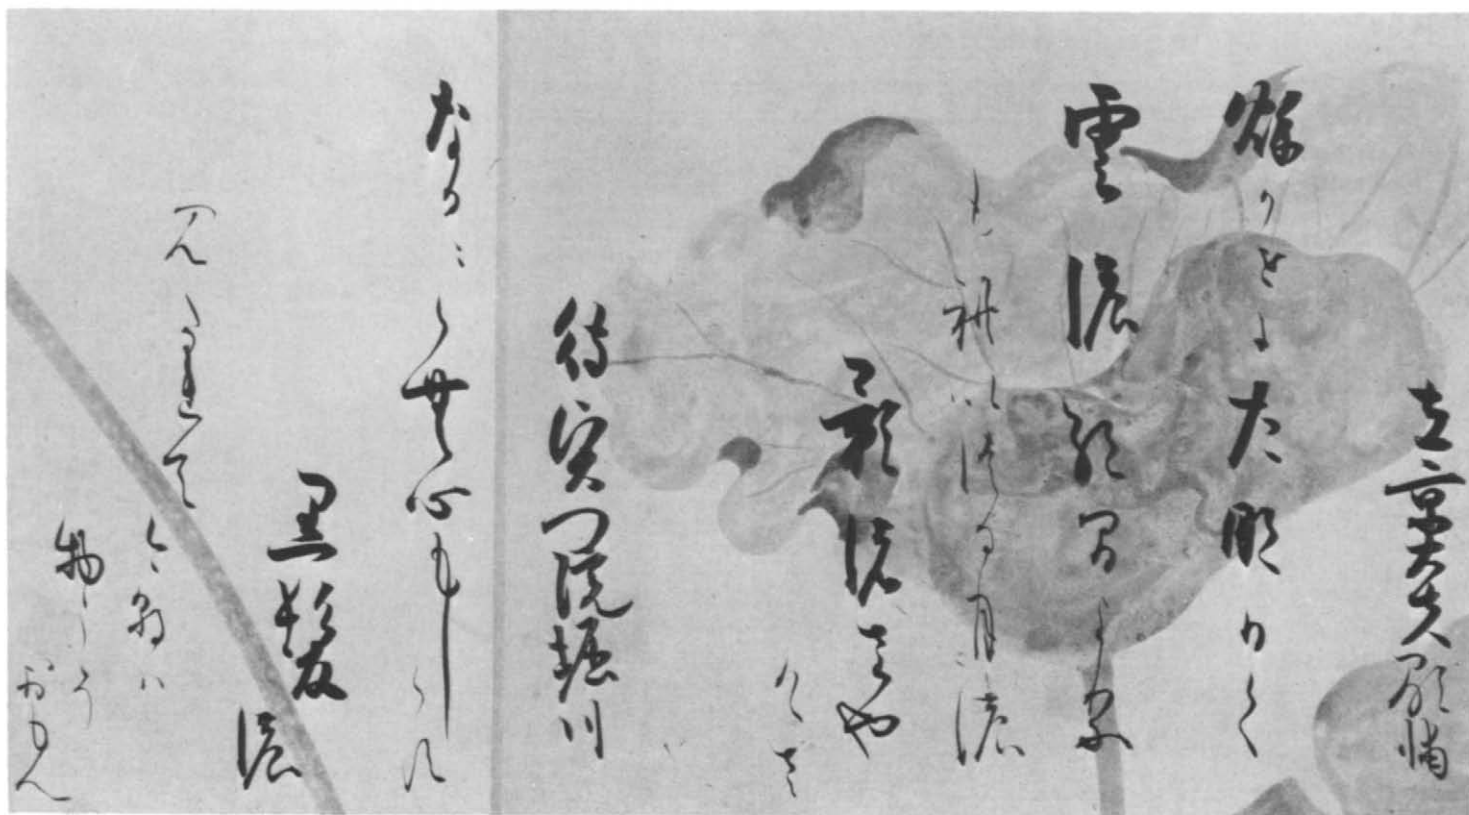 左京大夫顕輔
秋かせにたな引く
雲の絶間より
もれいつる月の
影のさや
けさ
待賢門院堀川
なかゝらむ心もしらす
黒髪の
みたれて
けさは
物をこそ
おもへ